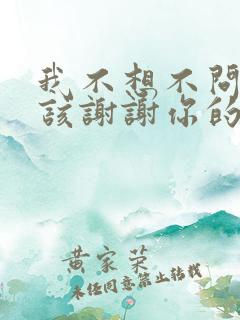 我不想不問
該謝謝你的
黃家荣
未经同意禁止转载